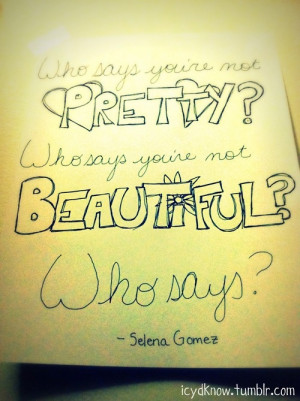 Who says you're not
PRETTY?
Who says you're not
BEAUTIFUL?
Who says?
- Selena Gomez
icydknow.tumblr.com